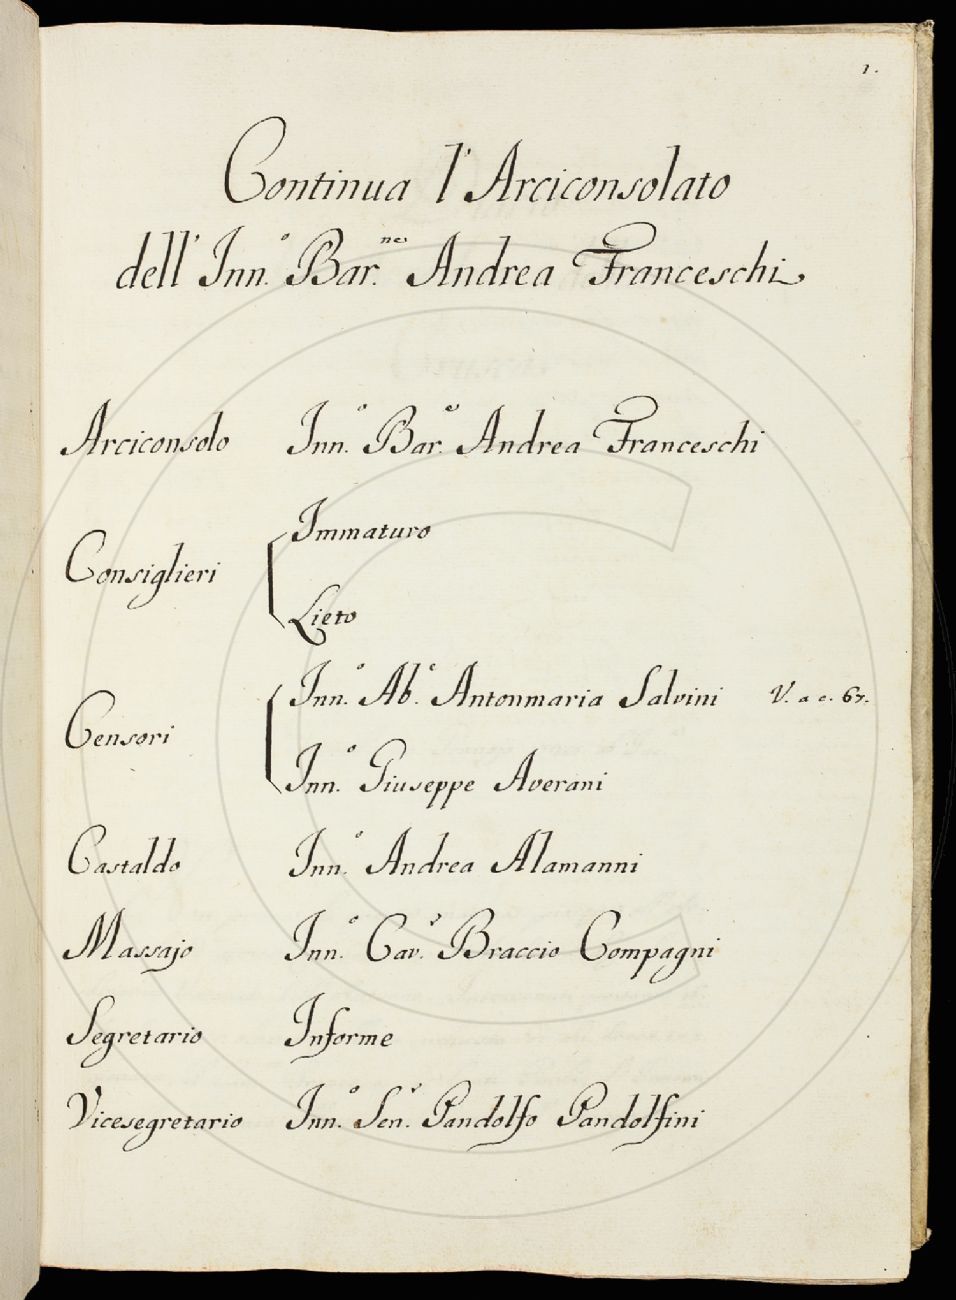 1.
Continua l'Arciconsolato
dell' Inn.º Bar.ne Andrea Franceschi
Arciconsolo Inn.º Bar.e Andrea Franceschi
Consiglieri Immaturo
Lieto
Censori Inn.º Ab.e Antonmaria Salvini V. a c. 67.
Inn.º Giuseppe Averani
Castaldo Inn.º Andrea Alamanni
Massajo Inn.º Cav.r Braccio Compagni
Segretario Informe
Vicesegretario Inn.º Sen.r Pandolfo Pandolfini